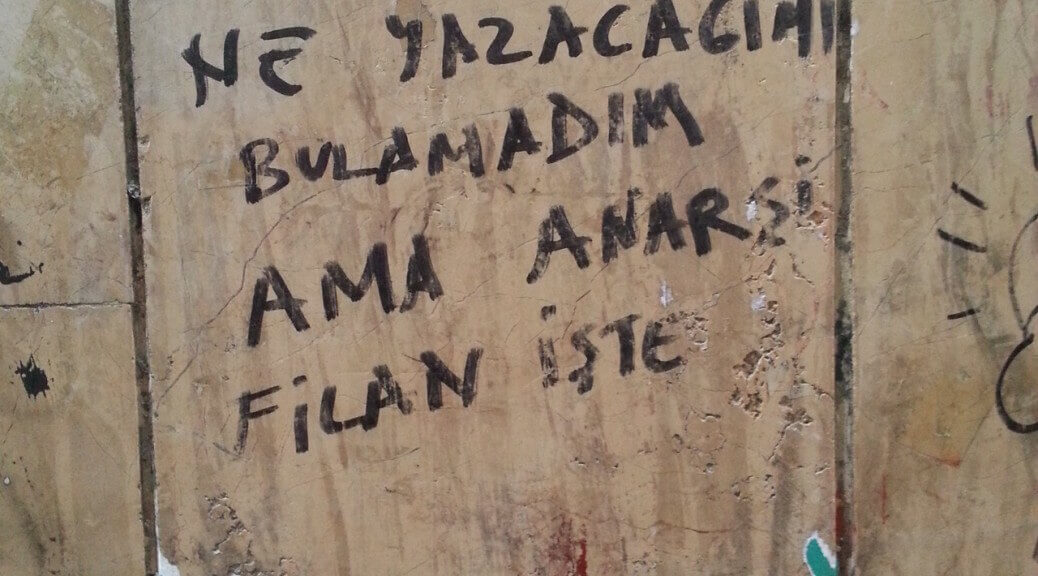 NE YAZACAGIMI
BULAMADIM
AMA ANARŞİ
FİLAN İŞTE